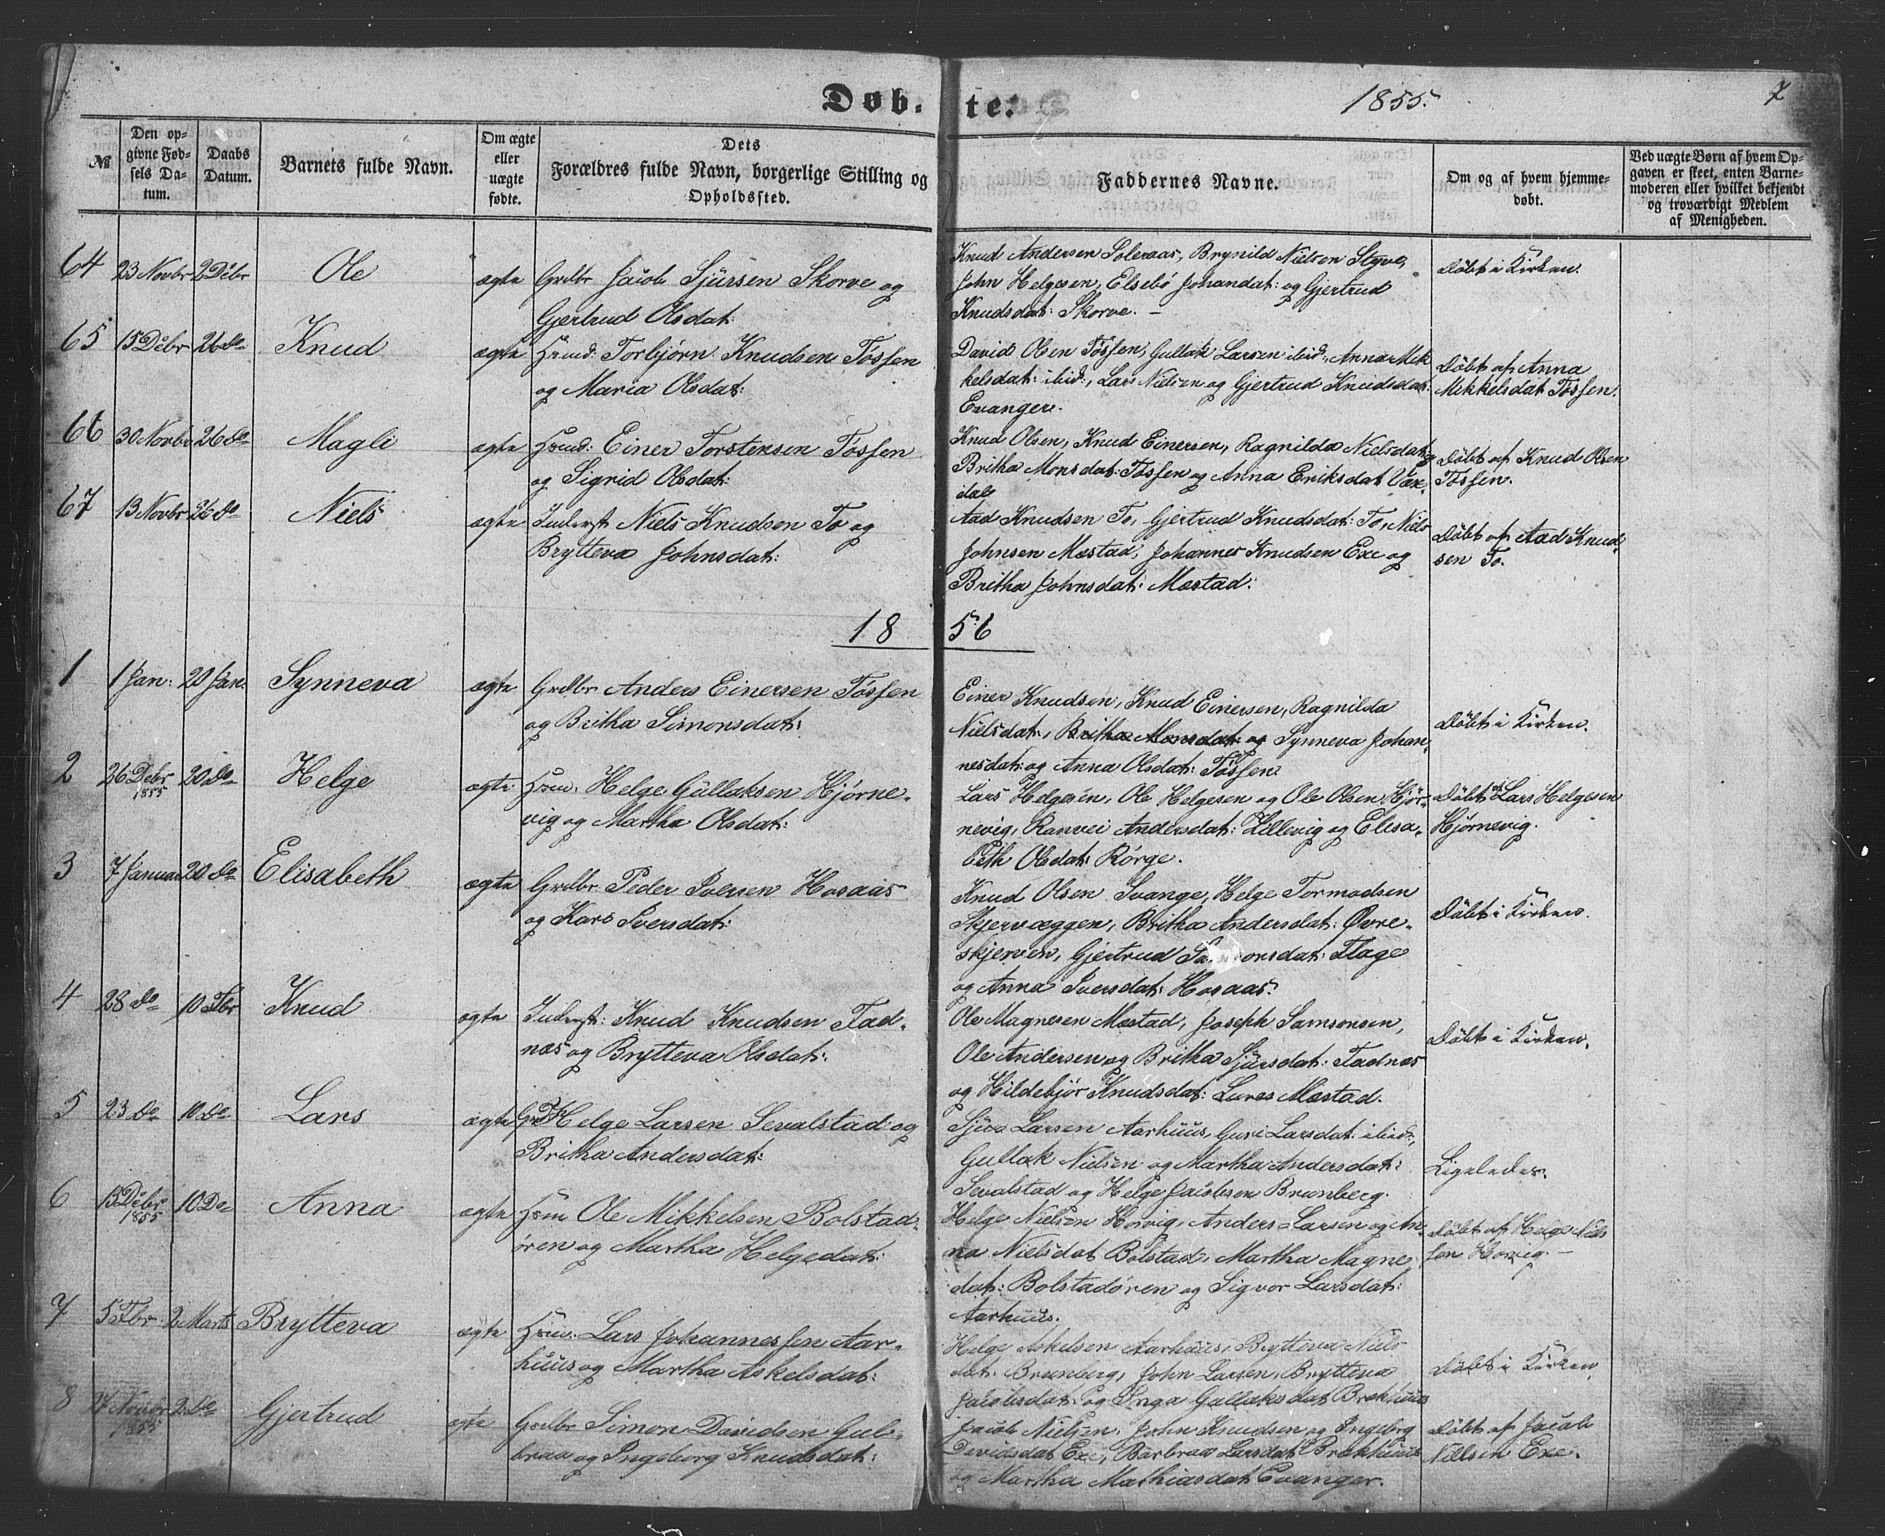 Døb-te. 1855. 7
№
Den opgivne Fødsels Datum.
Daabs Datum.
Barnets fulde Navn.
Om ægte eller uægte fødte.
Dets Forældres fulde Navn, borgerlige Stilling og Opholdssted.
Faddernes Navne.
Om og af hvem hjemmedøbt.
Ved uægte Børn af hvem Opgaven er skeet, enten Barnemoderen eller hvilket bekjendt og troværdigt Medlem af Menigheden.
64 23 Novbr 2 Dcbr Ole ægte Grdbr Jacob Sjursen Skorve og
Gjertrud Olsdat:
Knud Andersen Soleraas, Brynild Nielsen Styve,
John Helgesen, Elsebø Johandat: og Gjertrud
Knudsdat: Skorve. –
Døbt i Kirken.
65 15 Dcbr 26 do Knud ægte Hmd: Torbjørn Knudsen Føssen
og Maria Olsdat:
David Olsen Føssen, Gullak Larsen ibid:, Anna Mik
kelsdat: ibid:, Lars Nielsen og Gjertrud Knudsdat:
Evanger.
Døbt af Anna
Mikkelsdat Føssen.
66 30 Novbr 26 do Magli ægte Hmd: Einer Torstensen Føssen
og Sigrid Olsdat:
Knud Olsen, Knud Einersen, Ragnilda Nielsdat,
Britha Monsdat: Føssen og Anna Eriksdat Vax
dal
Døbt af Knud Olsen
Føssen.
67 13 Novbr 26 do Niels ægte Inderst Niels Knudsen To og
Brytteva Johnsdat:
Aad Knudsen To, Gjertrud Knudsdat: To, Niels
Johnsen Mæstad, Johannes Knudsen Exe og
Britha Johnsdat: Mæstad:
Døbt af Aad Knud-
sen To.
1856
1 1 Jan: 20 Jan: Synneva ægte Grdbr Anders Einersen Føssen
og Britha Simonsdat:
Einer Knudsen, Knud Einersen, Ragnilda
Nielsdat:, Britha Monsdat: og Synneva Johan,
nesdat: og Anna Olsdat: Føssen
Døbt i Kirken.
2 26 Dcbr 1855 20 do Helge ægte Hmd: Helge Gullaksen Hjørne-
vig og Martha Olsdat:
Lars Helgesen, Ole Helgesen og Ole Olsen Hjør-
nevig, Ranvei Andersdat: Lillevig og Elisa-
beth Olsdat: Rørge.
Døbt af Lars Helgesen
Hjørnevig.
3 7 Januar 20 do Elisabeth ægte Grdbr Peder Iversen Hosaas
og Kari Iversdat:
Knud Olsen Svange, Helge Tormodsen
Skjervæggen, Britha Andersdat: Øvre-
skjerven, Gjertrud Samsonsdat: Flage
og Anna Iversdat: Hosaas.
Døbt i Kirken.
4 28 do 10 Fbr Knud ægte Inderst: Knud Knudsen Fad-
næs og Brytteva Olsdat:
Ole Magnesen Mæstad, Joseph Samsonsen,
Ole Andersen og Britha Sjursdat: Fadnæs
og Hildebjør Knudsdat: Mæstad.
Døbt i Kirken.
5 23 do 10 do Lars ægte Helge Larsen Sevalstad og
Britha Andersdat:
Sjur Larsen Aarhuus, Guri Larsdat: ibid:,
Gullak Nielsen og Martha Andersdat:
Sevalstad og Helge Jacobsen Brunberg.
Ligeledes.
6 13 Dcbr 1855 10 do Anna ægte Hmd Ole Mikkelsen Bolstad-
øren og Martha Helgedat:
Helge Nielsen Horvig, Anders Larsen og An-
na Nielsdat Bolstad, Martha Magne
dat: Bolstadøren og Sigvor Larsdat:
Aarhuus.
Døbt af Helge Niels
sen Horvig. –
7 5 Fbr 2 Marts Brytteva ægte Hmd: Lars Johannessen Aar-
huus og Martha Askelsdat:
Helge Askelsen Aarhuus, Brytteva Niels
dat: Brunberg, John Larsen, Brytteva
Jacobsdat: og Inga Gullaksdat Brekhuus
Døbt i Kirken.
8 27 Novbr 1855 2 do Gjertrud ægte Grdbr Simon Davidsen Gul-
braa og Ingeborg Knudsdat:
Jacob Nielsen, John Knudsen og Ingeborg
Davidsdat Exe, Barbraa Larsdat Brekhuus
og Martha Mathiasdat Evanger.
Døbt af Jacob
Nielsen Exe.